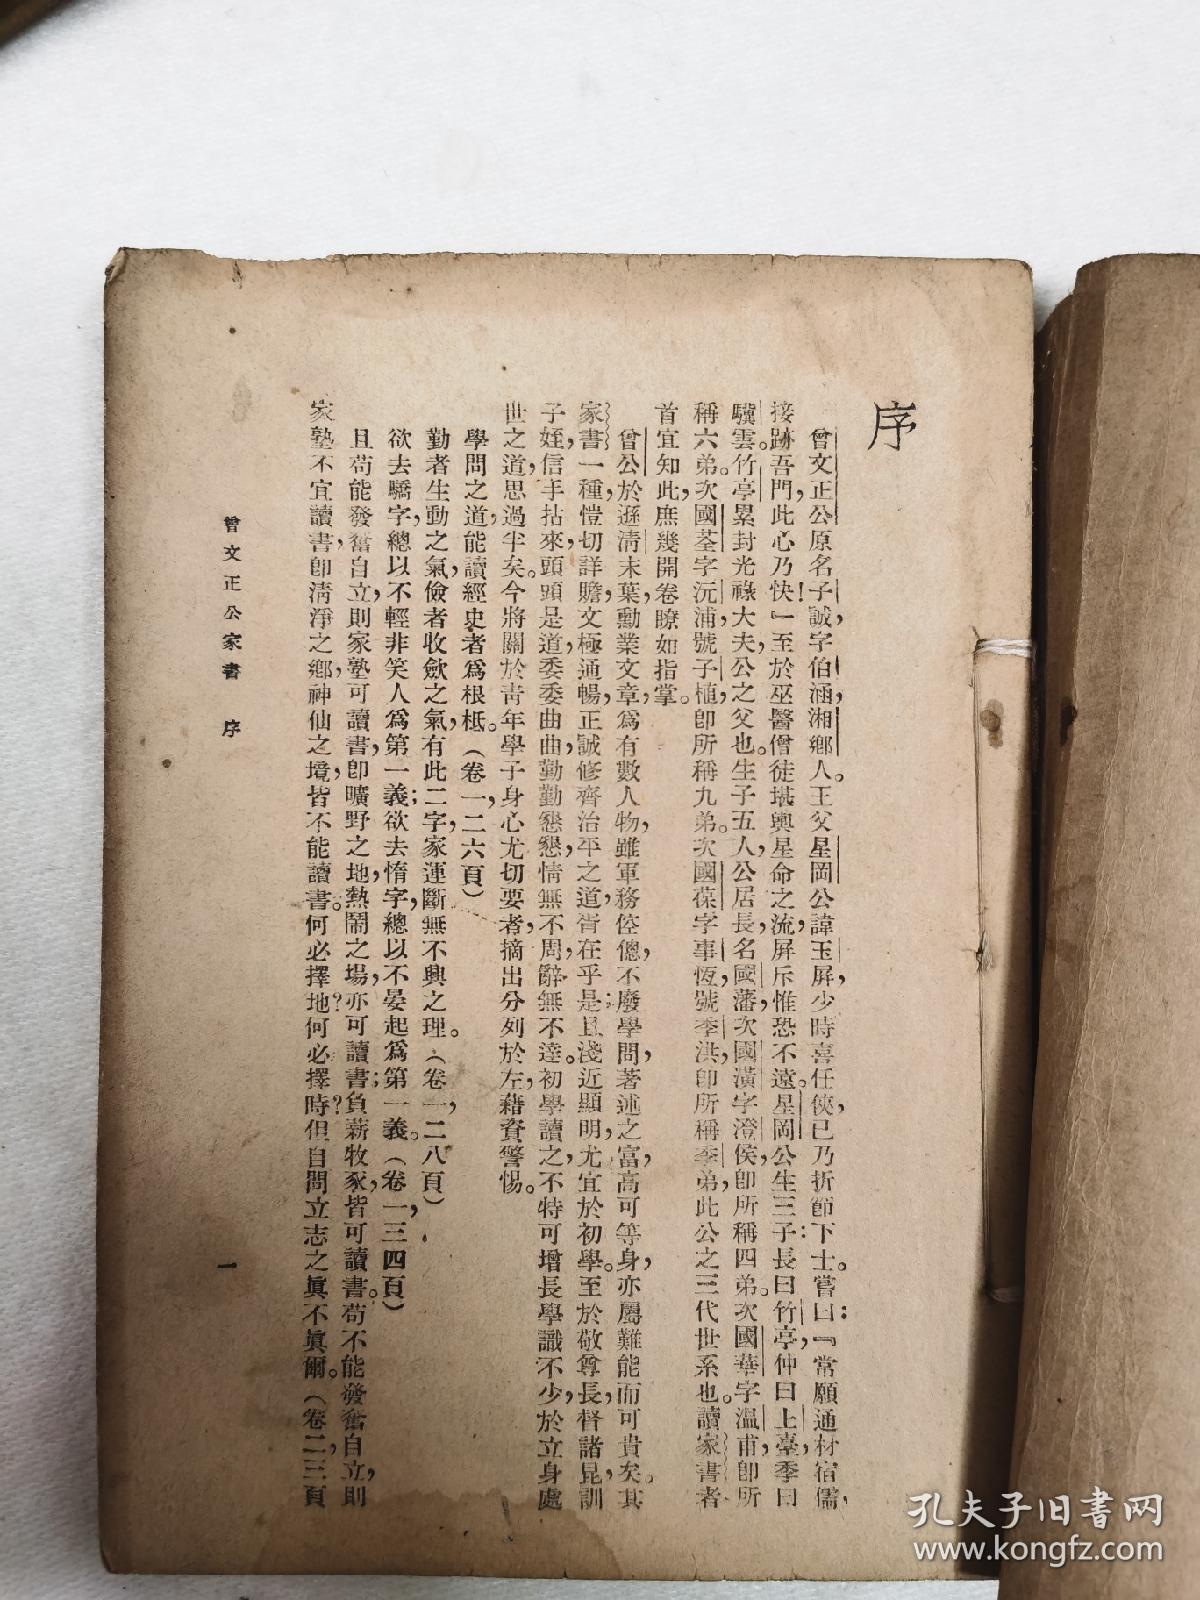 序
曾文正公原名子誠，字伯涵，湘鄉人。王父星岡公諱玉屏，少時喜任俠，已乃折節下士。嘗曰：『常願通材宿儒，
接跡吾門，此心乃快！』至於巫醫僧徒堪輿星命之流，屏斥惟恐不遠。星岡公生三子：長曰竹亭，仲曰上臺，季曰
驥雲。竹亭累封光祿大夫，公之父也。生子五人，公居長，名國藩，次國潢字澄侯，卽所稱四弟。次國華字溫甫，卽所
稱六弟。次國荃字沅浦，號子植，卽所稱九弟。次國葆字事恆，號季洪，卽所稱季弟，此公之三代世系也。讀家書者
首宜知此，庶幾開卷瞭如指掌。
曾公於遜淸末葉，勳業文章，爲有數人物，雖軍務倥傯，不廢學問，著述之富，高可等身，亦屬難能而可貴矣。其
家書一種，愷切詳贍，文極通暢，正誠修齊治平之道，胥在乎是；且淺近顯明，尤宜於初學。至於敬尊長，督諸昆，訓
子姪，信手拈來，頭頭是道，委委曲曲，勤勤懇懇，情無不周，辭無不達。初學讀之，不特可增長學識不少，於立身處
世之道，思過半矣。今將關於靑年學子身心尤切要者，摘出分列於左，藉資警惕。
學問之道，能讀經史者爲根柢。（卷一，二六頁）
勤者生動之氣，儉者收斂之氣，有此二字，家運斷無不興之理。（卷一，二八頁）
欲去驕字，總以不輕非笑人爲第一義；欲去惰字，總以不晏起爲第一義。（卷一，三四頁）
且苟能發奮自立，則家塾可讀書，卽曠野之地，熱鬧之場，亦可讀書；負薪牧豕，皆可讀書。苟不能發奮自立，則
家塾不宜讀書，卽淸淨之鄉，神仙之境，皆不能讀書。何必擇地？何必擇時？但自問立志之眞不眞爾。（卷二，三頁
曾文正公家書　序
一
孔夫子旧书网
www.kongfz.com